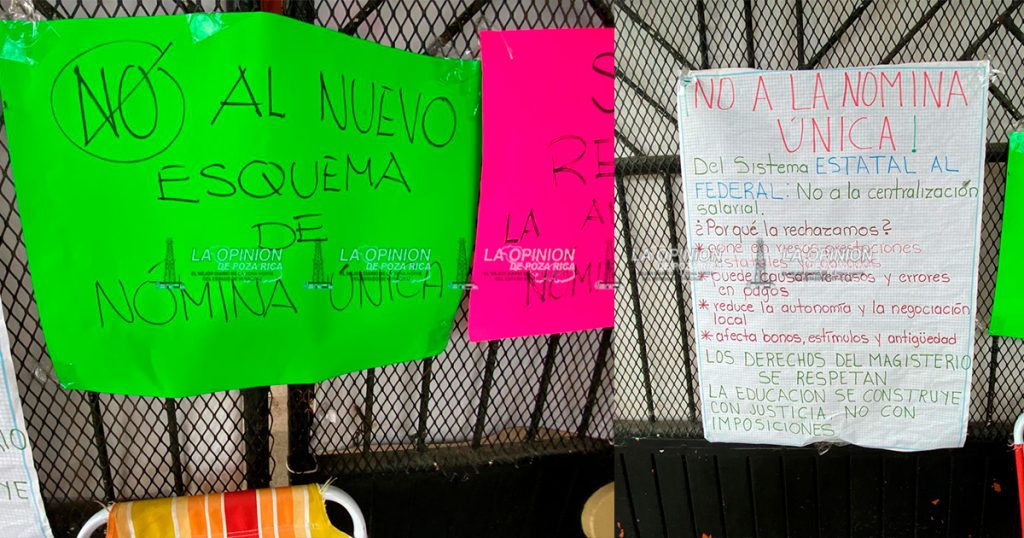 NO AL NUEVO
ESQUEMA
DE
NÓMINA ÚNICA
S
RE
LA A
NÓMI
NO A LA NÓMINA
ÚNICA!
Del Sistema ESTATAL AL
FEDERAL: No a la centralización
salarial.
¿Por qué la rechazamos?
* pone en riesgo prestaciones
* puede causar retrasos y errores
en pagos
* reduce la autonomía y la negociación
local
* afecta bonos, estímulos y antigüedad
LOS DERECHOS DEL MAGISTERIO
SE RESPETAN
LA EDUCACIÓN SE CONSTRUYE
CON JUSTICIA NO CON
IMPOSICIONES
LA OPINION
DE POZA RICA
LA OPINION
DE POZA RICA
LA OPINION
DE POZA RICA
LA OPINION
DE POZA RICA